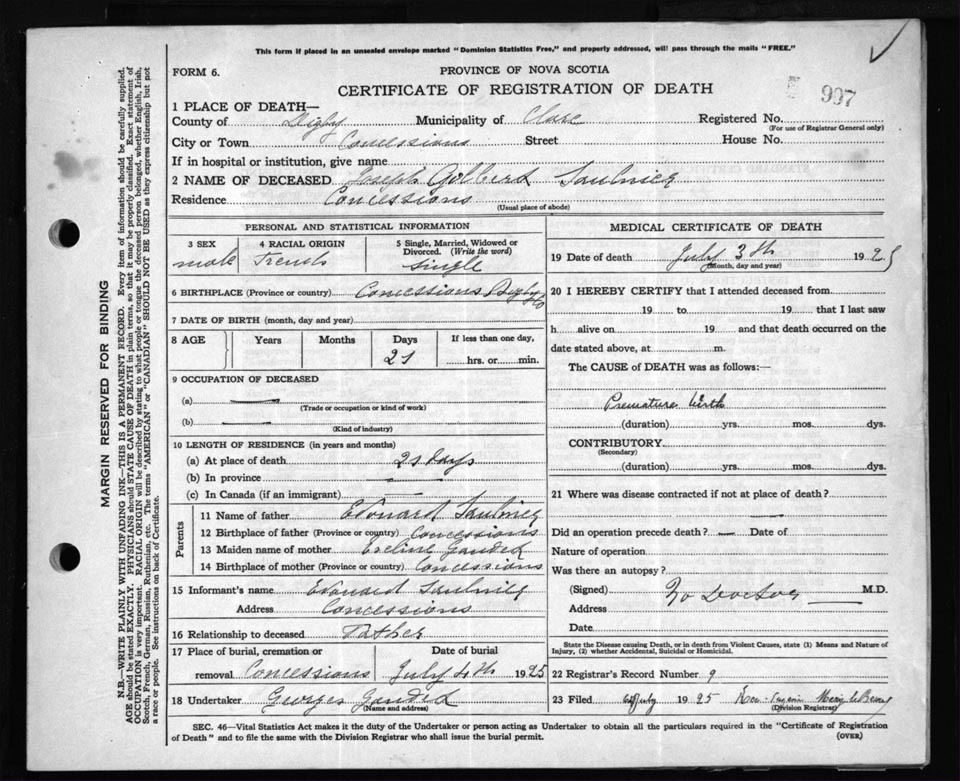 This form if placed in an unsealed envelope marked "Dominion Statistics Free," and properly addressed, will pass through the mails "FREE."
FORM 6.
PROVINCE OF NOVA SCOTIA
CERTIFICATE OF REGISTRATION OF DEATH
997
1 PLACE OF DEATH—
County of Digby Municipality of Clare Registered No.
(For use of Registrar General only)
City or Town Concessions Street House No.
If in hospital or institution, give name
2 NAME OF DECEASED Joseph Golberd Saulnier
Residence Concessions
(Usual place of abode)
PERSONAL AND STATISTICAL INFORMATION
3 SEX 4 RACIAL ORIGIN 5 Single, Married, Widowed or Divorced. (Write the word)
male French Single
6 BIRTHPLACE (Province or country) Concessions Digby Co
7 DATE OF BIRTH (month, day and year)
8 AGE Years Months Days If less than one day,
21 hrs. or min.
9 OCCUPATION OF DECEASED
(a) —
(Trade or occupation or kind of work)
(b) —
(Kind of industry)
10 LENGTH OF RESIDENCE (in years and months)
(a) At place of death 21 days
(b) In province —
(c) In Canada (if an immigrant)
Parents
11 Name of father Edouard Saulnier
12 Birthplace of father (Province or country) Concessions
13 Maiden name of mother Eveline Gauded
14 Birthplace of mother (Province or country) Concessions
15 Informant's name Edouard Saulnier
Address Concessions
16 Relationship to deceased Father
17 Place of burial, cremation or removal Date of burial
Concessions July 4th 1925
18 Undertaker Georges Gauded
(Name and address)
MEDICAL CERTIFICATE OF DEATH
19 Date of death July 3th 1925
(Month, day and year)
20 I HEREBY CERTIFY that I attended deceased from
19 to 19 that I last saw
h alive on 19 and that death occurred on the
date stated above, at m.
The CAUSE of DEATH was as follows:—
Premature birth
(duration) yrs. mos. dys.
CONTRIBUTORY
(Secondary)
(duration) yrs. mos. dys.
21 Where was disease contracted if not at place of death?
—
Did an operation precede death? — Date of
Nature of operation
Was there an autopsy?
(Signed) No Doctor — M.D.
Address
Date
State the Disease Causing Death, or in death from Violent Causes, state (1) Means and Nature of Injury, (2) whether Accidental, Suicidal or Homicidal.
22 Registrar's Record Number 9
23 Filed July 1925
(Division Registrar)
SEC. 46—Vital Statistics Act makes it the duty of the Undertaker or person acting as Undertaker to obtain all the particulars required in the "Certificate of Registration
of Death" and to file the same with the Division Registrar who shall issue the burial permit.
(OVER)
MARGIN RESERVED FOR BINDING
N.B.—WRITE PLAINLY WITH UNFADING INK—THIS IS A PERMANENT RECORD. Every item of information should be carefully supplied.
AGE should be stated EXACTLY. PHYSICIANS should STATE CAUSE OF DEATH in plain terms, so that it may be properly classified. Exact statement of
OCCUPATION is very important. RACIAL ORIGIN will be described by stating to what people or tongue the deceased person belonged, whether English, Irish,
Scotch, French, German, Russian, Ruthenian, etc. The terms "AMERICAN" or "CANADIAN" SHOULD NOT BE USED as they express citizenship but not
a race or people. See instructions on back of Certificate.